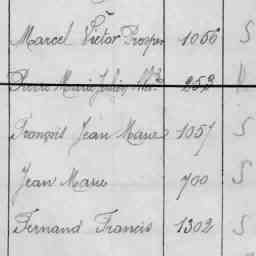 Marcel Victor Prosper 1066 S
Pierre Marie 252
François Jean Marie 1057 S
Jean Marie 700 S
Fernand Francis 1302 S